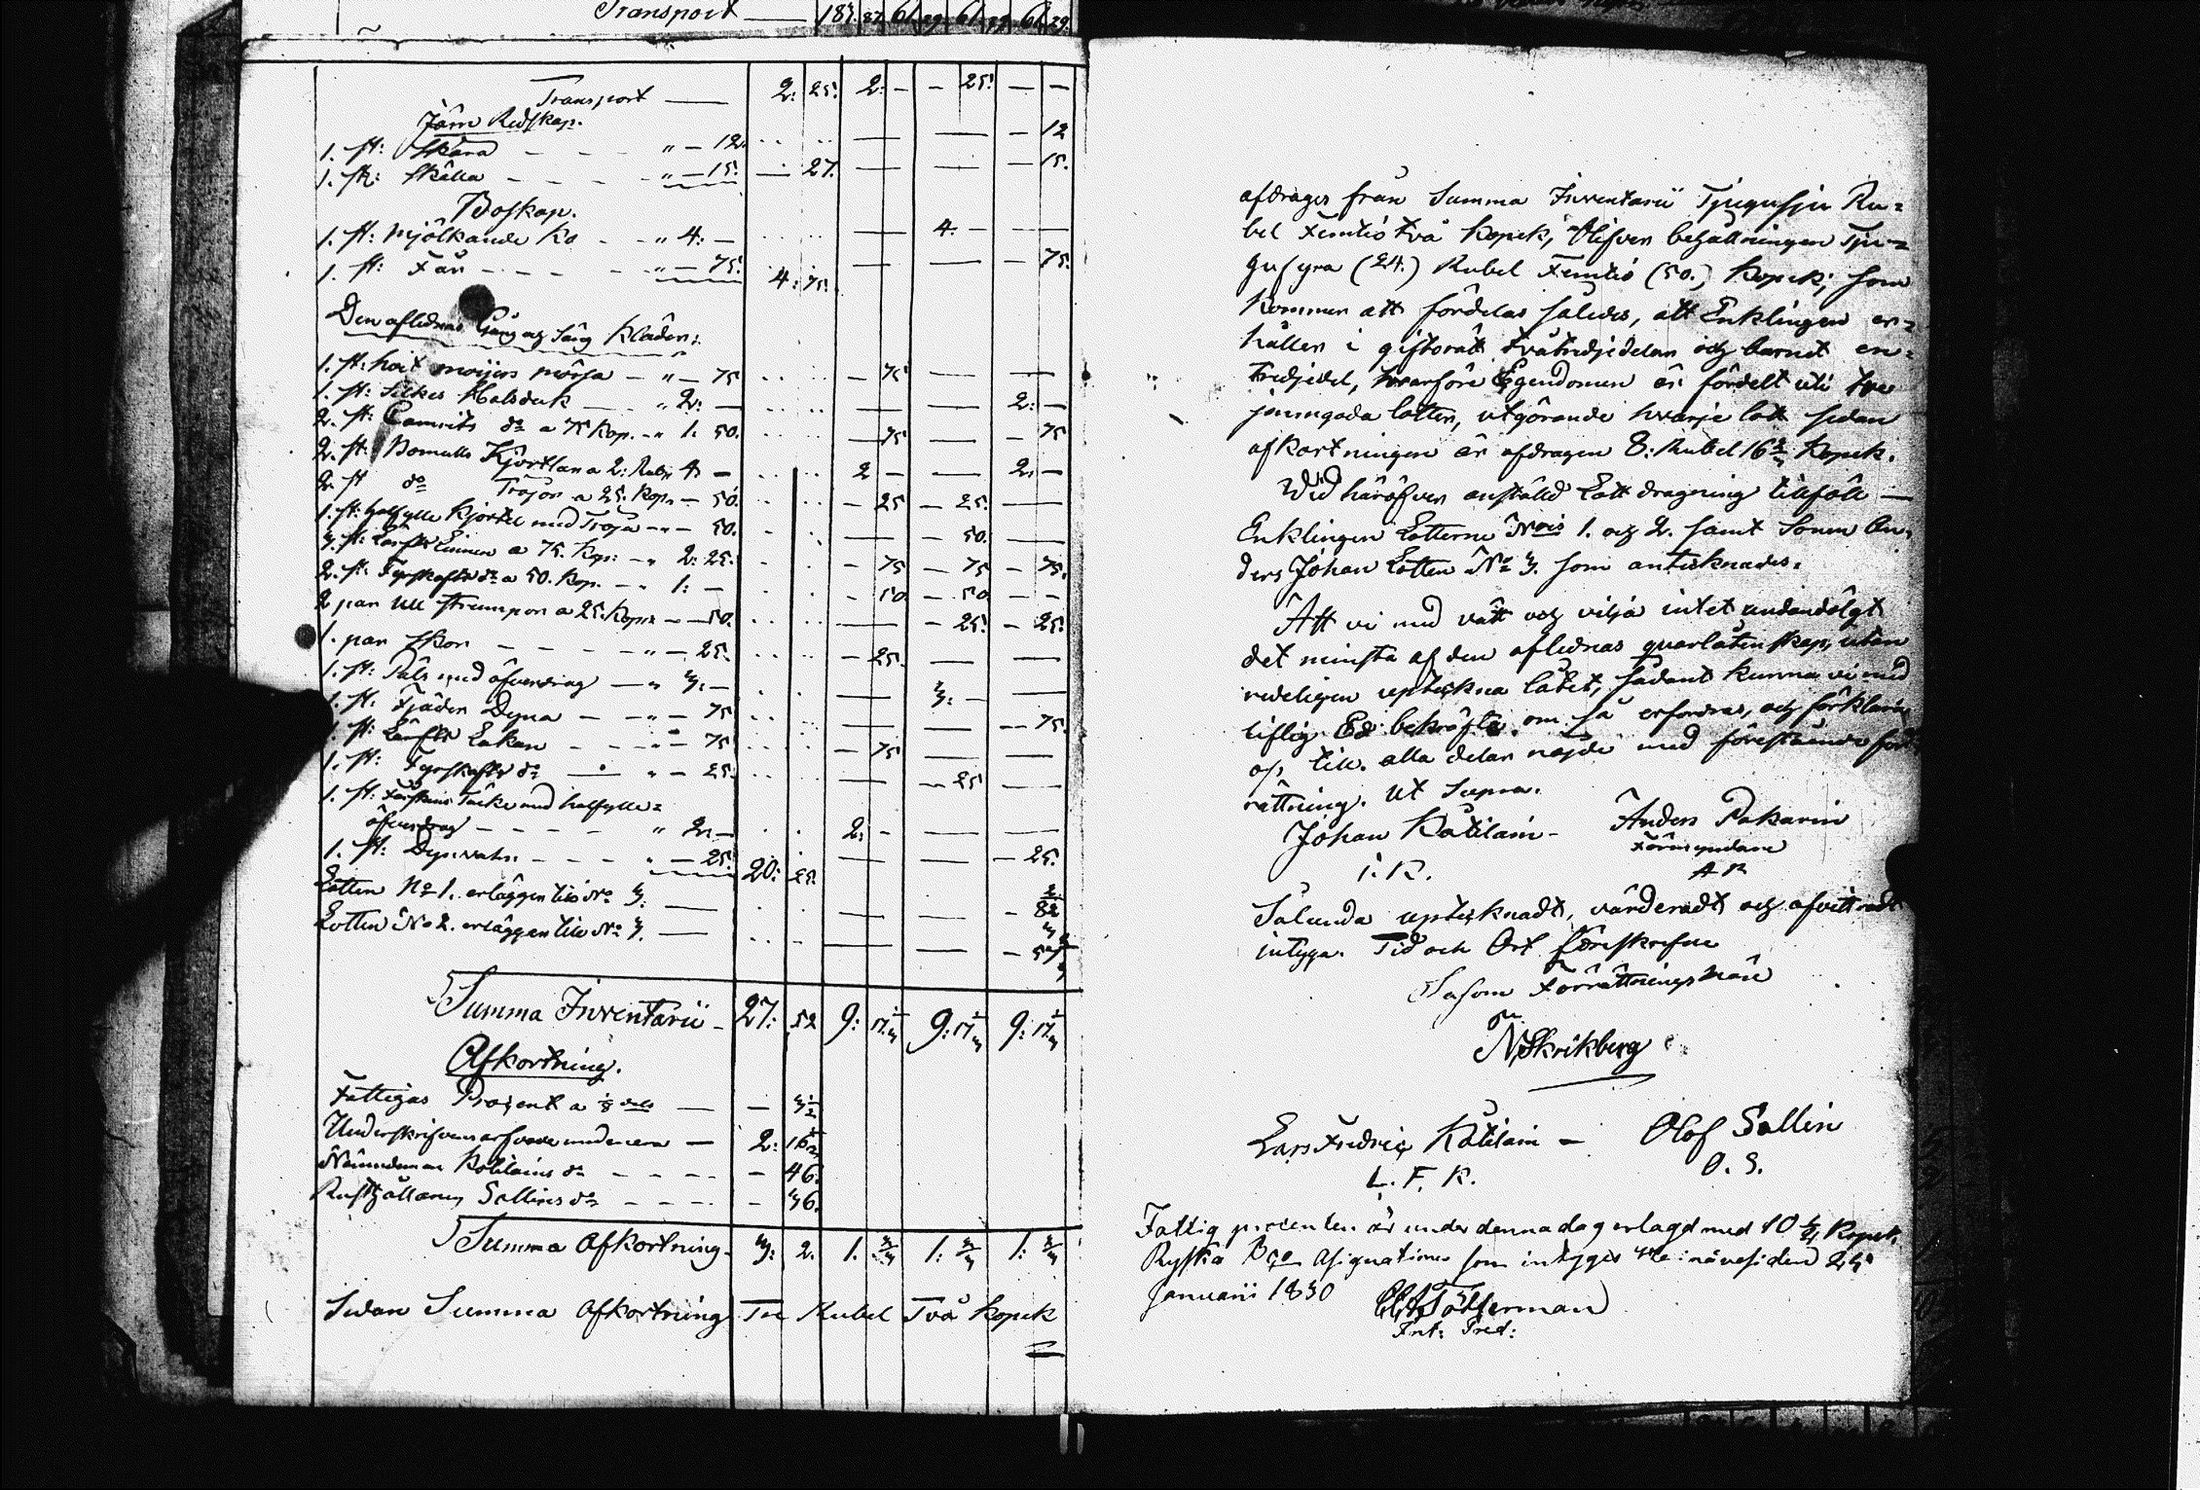 Transport — 187. 87 61 29 61 29 61 29.
Transport — 2: 25. 2: – – 25. — —
Järn Redskap.
1. st: Skära - - - " – 12. — — – 12
1. st: Skälla - - - " – 15. — 27. — — – 15.
Boskap.
1. st: Mjölkande Ko - - " 4: – — 4: – —
1. st: Får - - - - " – 75. 4: 75. — — – 75.
Den aflednas Gång og Säng Kläder:
1. st: hvit mössa — " – 75 – 75 — —
1. st: Silkes Halsduk — " 2: – — — 2: –
2. st: do a 75 Kop. – " 1: 50. – 75 — – 75
2. st: Bomulls Kjortlar a 2: Rub: 4: – 2 – — 2: –
2. st do Tröjor a 25. Kop: – 50. – 25 – 25. —
1. st: halfylle Kjortel med Tröja – " – 50. — – 50. —
3. st: Linnen a 75. Kop: – " 2: 25. – 75 – 75 – 75.
2. st: Fyrskafts do a 50. Kop. – " 1: – – 50. – 50 – –
2 par Ull strumpor a 25. Kop: – – 50. — – 25. – 25.
1. par Skor - - - - " – 25. – 25. — —
1. st: Päls med öfverdrag — " 3: – — 3: – —
1. st. Fjäder Dyna – – " – 75 — — – 75.
1. st: Lakan - - - " – 75 – 75 — —
1. st: Fyrskafts do — " – 25. — – 25 —
1. st: Fårskins Täcke med halfylle=
öfverdrag - - - - " 2: – 2: – — —
1. st: Dynvahr - - - " – 25. 20: 25. — — – 25.
Lotten No 1. erlägger till No 3. — — — – 82 2/3
Lotten No 2. erlägger till No 3. — — — – 57 2/3
Summa Inventarii – 27: 52 9: 17 1/3 9: 17 1/3 9: 17 1/3
Afkortning.
Fattigas Procent a 1/8 dels — — 3 1/2
Underskrifvens arfvode undenera — 2: 16 1/2
Nämndeman Kotilains do - - - – 46.
Rusthållaren Sallins do - - - – 36.
Summa Afkortning – 3: 2. 1. 2/3 1: 2/3 1: 2/3
Sedan Summa Afkortning Tre Rubel Två Kopek
afdrages från Summa Inventarii Tjugusju Ru=
bel Femtiotvå Kopek, blifver behållningen Tju=
gufyra (24.) Rubel Femtio (50.) Kopek; som
kommer att fördelas således, att Enklingen er=
håller i giftorätt tvåtredjedelar och barnet en=
tredjedel, hvarföre Egendomen är fördelt uti tre
jemngoda lotter, utgörande hvarje lott sedan
afkortningen är afdragen 8: Rubel 16 2/3 Kopek.
Wid häröfver anställd Lottdragning tillföll —
Enklingen Lotterne Nois 1. og 2. samt Sonen An=
ders Johan Lotten No 3. som antecknades.
Att vi med vett och vilja intet undandölgt
det minsta af den aflednas qvarlåtenskap, utan
redeligen upteckna låtit, sådant kunna vi med
liflig Ed bekräfta, om så erfordras, och förklara
os till alla delar nöjde med förestående för=
rättning. Ut Supra.
Johan Kotilain – Anders Pakarin
Förmyndare
I. K. A P
Sålunda uptecknadt, värderadt och afvittradt
intyga. Tid och Ort föreskrefne
Såsom Förrättningsmän
N Skrikberg
Lars Fredric Kotilain – Olof Sallin
L. F. K. O. S.
Fattig procenten är under denna dag erlagd med 10
Ryska Asignationer som intyges
Januarii 1830